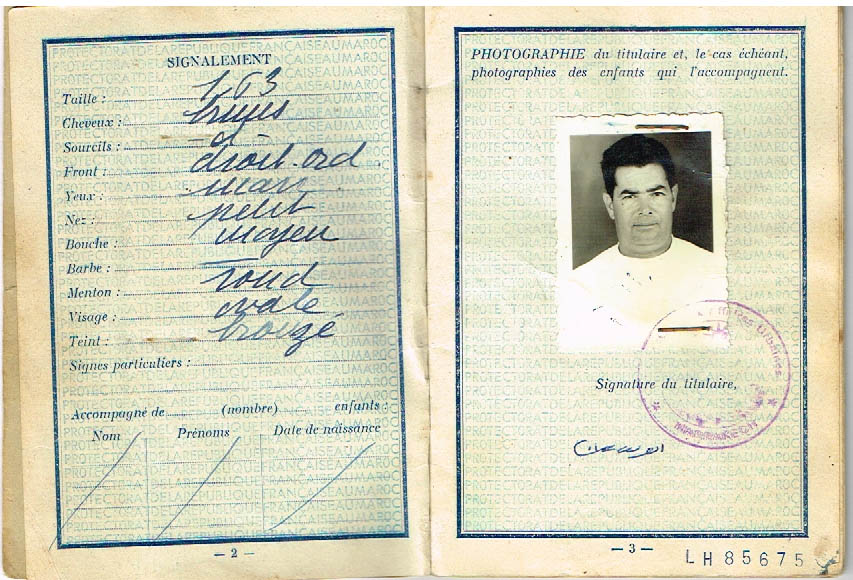 SIGNALEMENT
Taille : 1,63
Cheveux : bruns
Sourcils : - d -
Front : droit. ord
Yeux : mar
Nez : petit
Bouche : moyen
Barbe :
Menton : rond
Visage : ovale
Teint : bronzé
Signes particuliers :
Accompagné de (nombre) enfants :
Nom Prénoms Date de naissance
— 2 —
PHOTOGRAPHIE du titulaire et, le cas échéant,
photographies des enfants qui l'accompagnent.
Signature du titulaire,
— 3 —
LH85675
PROTECTORAT DE LA REPUBLIQUE FRANÇAISE AU MAROC